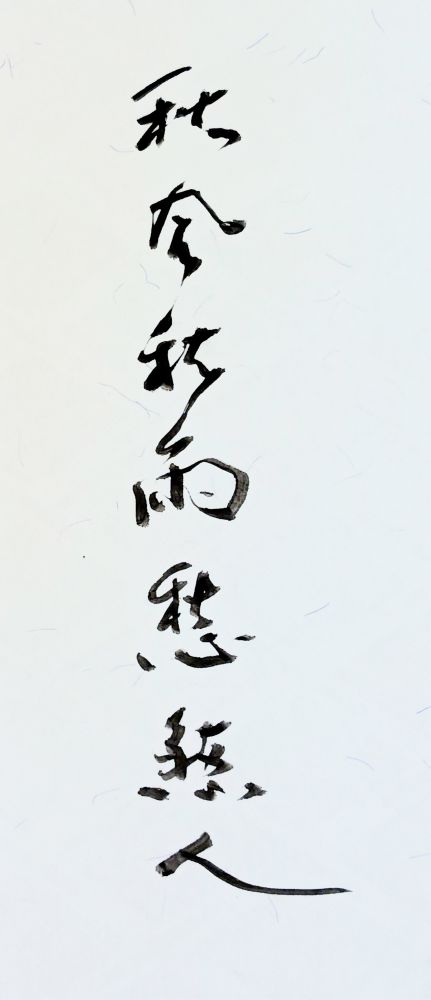 秋風秋雨愁煞人